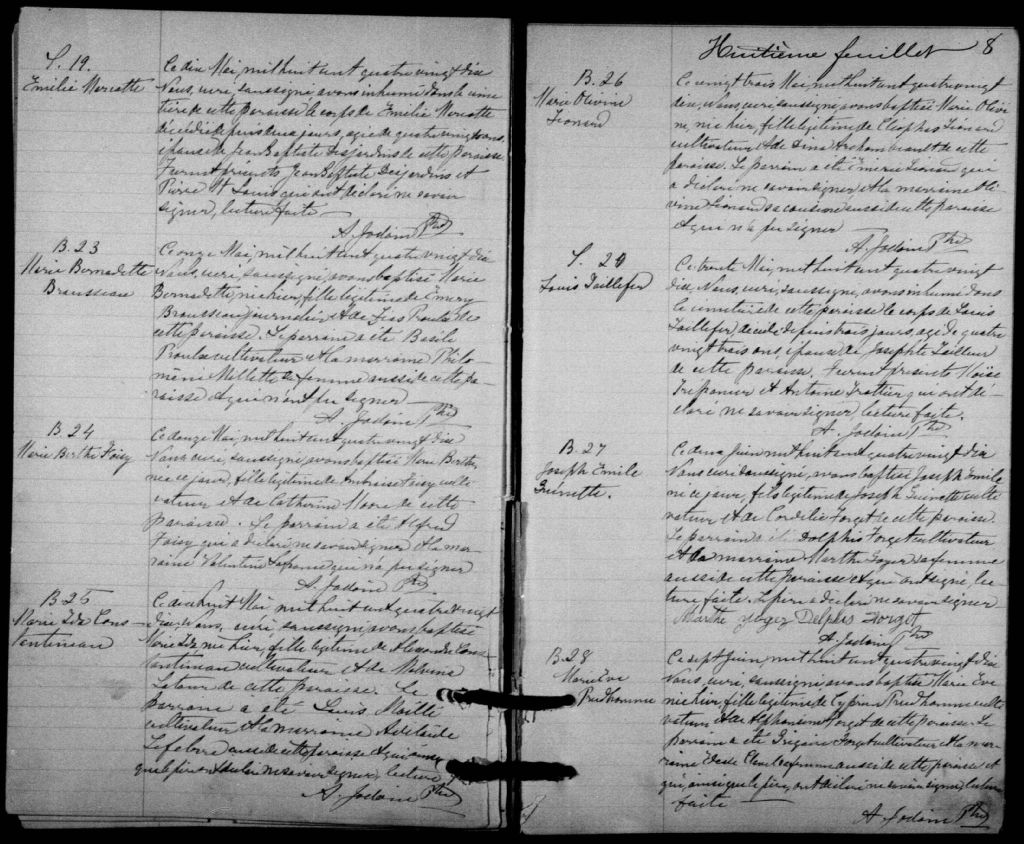 S. 19.
Emilie Marcotte
Ce dix Mai, mil huit cent quatre vingt dix
Nous, curé, soussigné avons inhumé dans le cime
tière de cette paroisse le corps de Emilie Marcotte
décédée depuis deux jours, agée de quatre vingt ans,
épouse de Jean Baptiste Desjardins de cette paroisse
Furent présents Jean Baptiste Desjardins et
Pierre St Louis qui ont déclaré ne savoir
signer, lecture faite
A. Jodoin Ptre
B. 23
Marie Bernadette
Brousseau
Ce onze Mai, mil huit cent quatre vingt dix
Nous, curé, soussigné, avons baptisé Marie
Bernadette, née hier, fille légitime de Emery
Brousseau journalier, et de Proulx de
cette paroisse. Le parrain a été Basile
Proulx cultivateur et la marraine Philo-
mène Mallette sa femme aussi de cette pa-
roisse et qui n'ont pu signer
A. Jodoin Ptre
B. 24
Marie Berthe Foisy
Ce douze Mai, mil huit cent quatre vingt dix
Nous, curé, soussigné, avons baptisé Marie Berthe,
née ce jour, fille légitime de Foisy culti
vateur et de Catherine Moore de cette
paroisse. Le parrain a été Alfred
Foisy qui a déclaré ne savoir signer et la mar-
raine Valentine qui n'a pu signer
A. Jodoin Ptre
B. 25
Marie Ida Cons-
tantineau
Ce dix huit Mai mil huit cent quatre vingt
dix, Nous, curé, soussigné, avons baptisé
Marie Ida née hier, fille légitime de Alexandre Cons
tantineau cultivateur et de Malvina
Latour de cette paroisse. Le
parrain a été Louis Maillé
cultivateur et la marraine Adélaïde
Lefebvre aussi de cette paroisse et qui ainsi
que le père ont déclaré ne savoir signer, lecture f
A. Jodoin Ptre
Huitième feuillet 8
B. 26
Marie Olivine
Léonard
Ce vingt trois Mai, mil huit cent quatre vingt
dix, Nous, curé, soussigné, avons baptisé Marie Olivi
ne, née hier, fille légitime de Cléophas Léonard
cultivateur et de Dina Archambault de cette
paroisse. Le parrain a été Emérie Léonard qui
a déclaré ne savoir signer et la marraine Oli-
vine Léonard sa cousine aussi de cette paroisse
et qui n'a pu signer
A. Jodoin Ptre
S. 20
Louis Taillefer
Ce trente Mai, mil huit cent quatre vingt
dix, Nous, curé, soussigné, avons inhumé dans
le cimetière de cette paroisse le corps de Louis
Taillefer, décédé depuis trois jours, agé de quatre
vingt trois ans, époux de Josephte Tailleur
de cette paroisse. Furent présents Moïse
Trépanier et Antoine Trottier qui ont dé-
claré ne savoir signer lecture faite.
A. Jodoin Ptre
B. 27
Joseph Emile
Guénette.
Ce deux Juin mil huit cent quatre vingt dix
Nous curé soussigné, avons baptisé Joseph Emile
né ce jour, fils légitime de Joseph Guénette culti
vateur et de Cordélie Forget de cette paroisse.
Le parrain a été Dolphis Forget cultivateur
et la marraine Marthe Goyer sa femme
aussi de cette paroisse et qui ont signé, lec
ture faite. Le père a déclaré ne savoir signer
Marthe Goyer Delphis Forget
A. Jodoin Ptre
B. 28
Marie Eve
Prud'homme
Ce sept Juin, mil huit cent quatre vingt dix
Nous, curé, soussigné, avons baptisé Marie Eve
née hier, fille légitime de Cyprien Prud'homme culti
vateur et de Alphonsine Forget de cette paroisse. Le
parrain a été Grégoire Forget cultivateur et la mar-
raine sa femme aussi de cette paroisse et
qui, ainsi que le père, ont déclaré ne savoir signer, lecture
faite
A. Jodoin Ptre